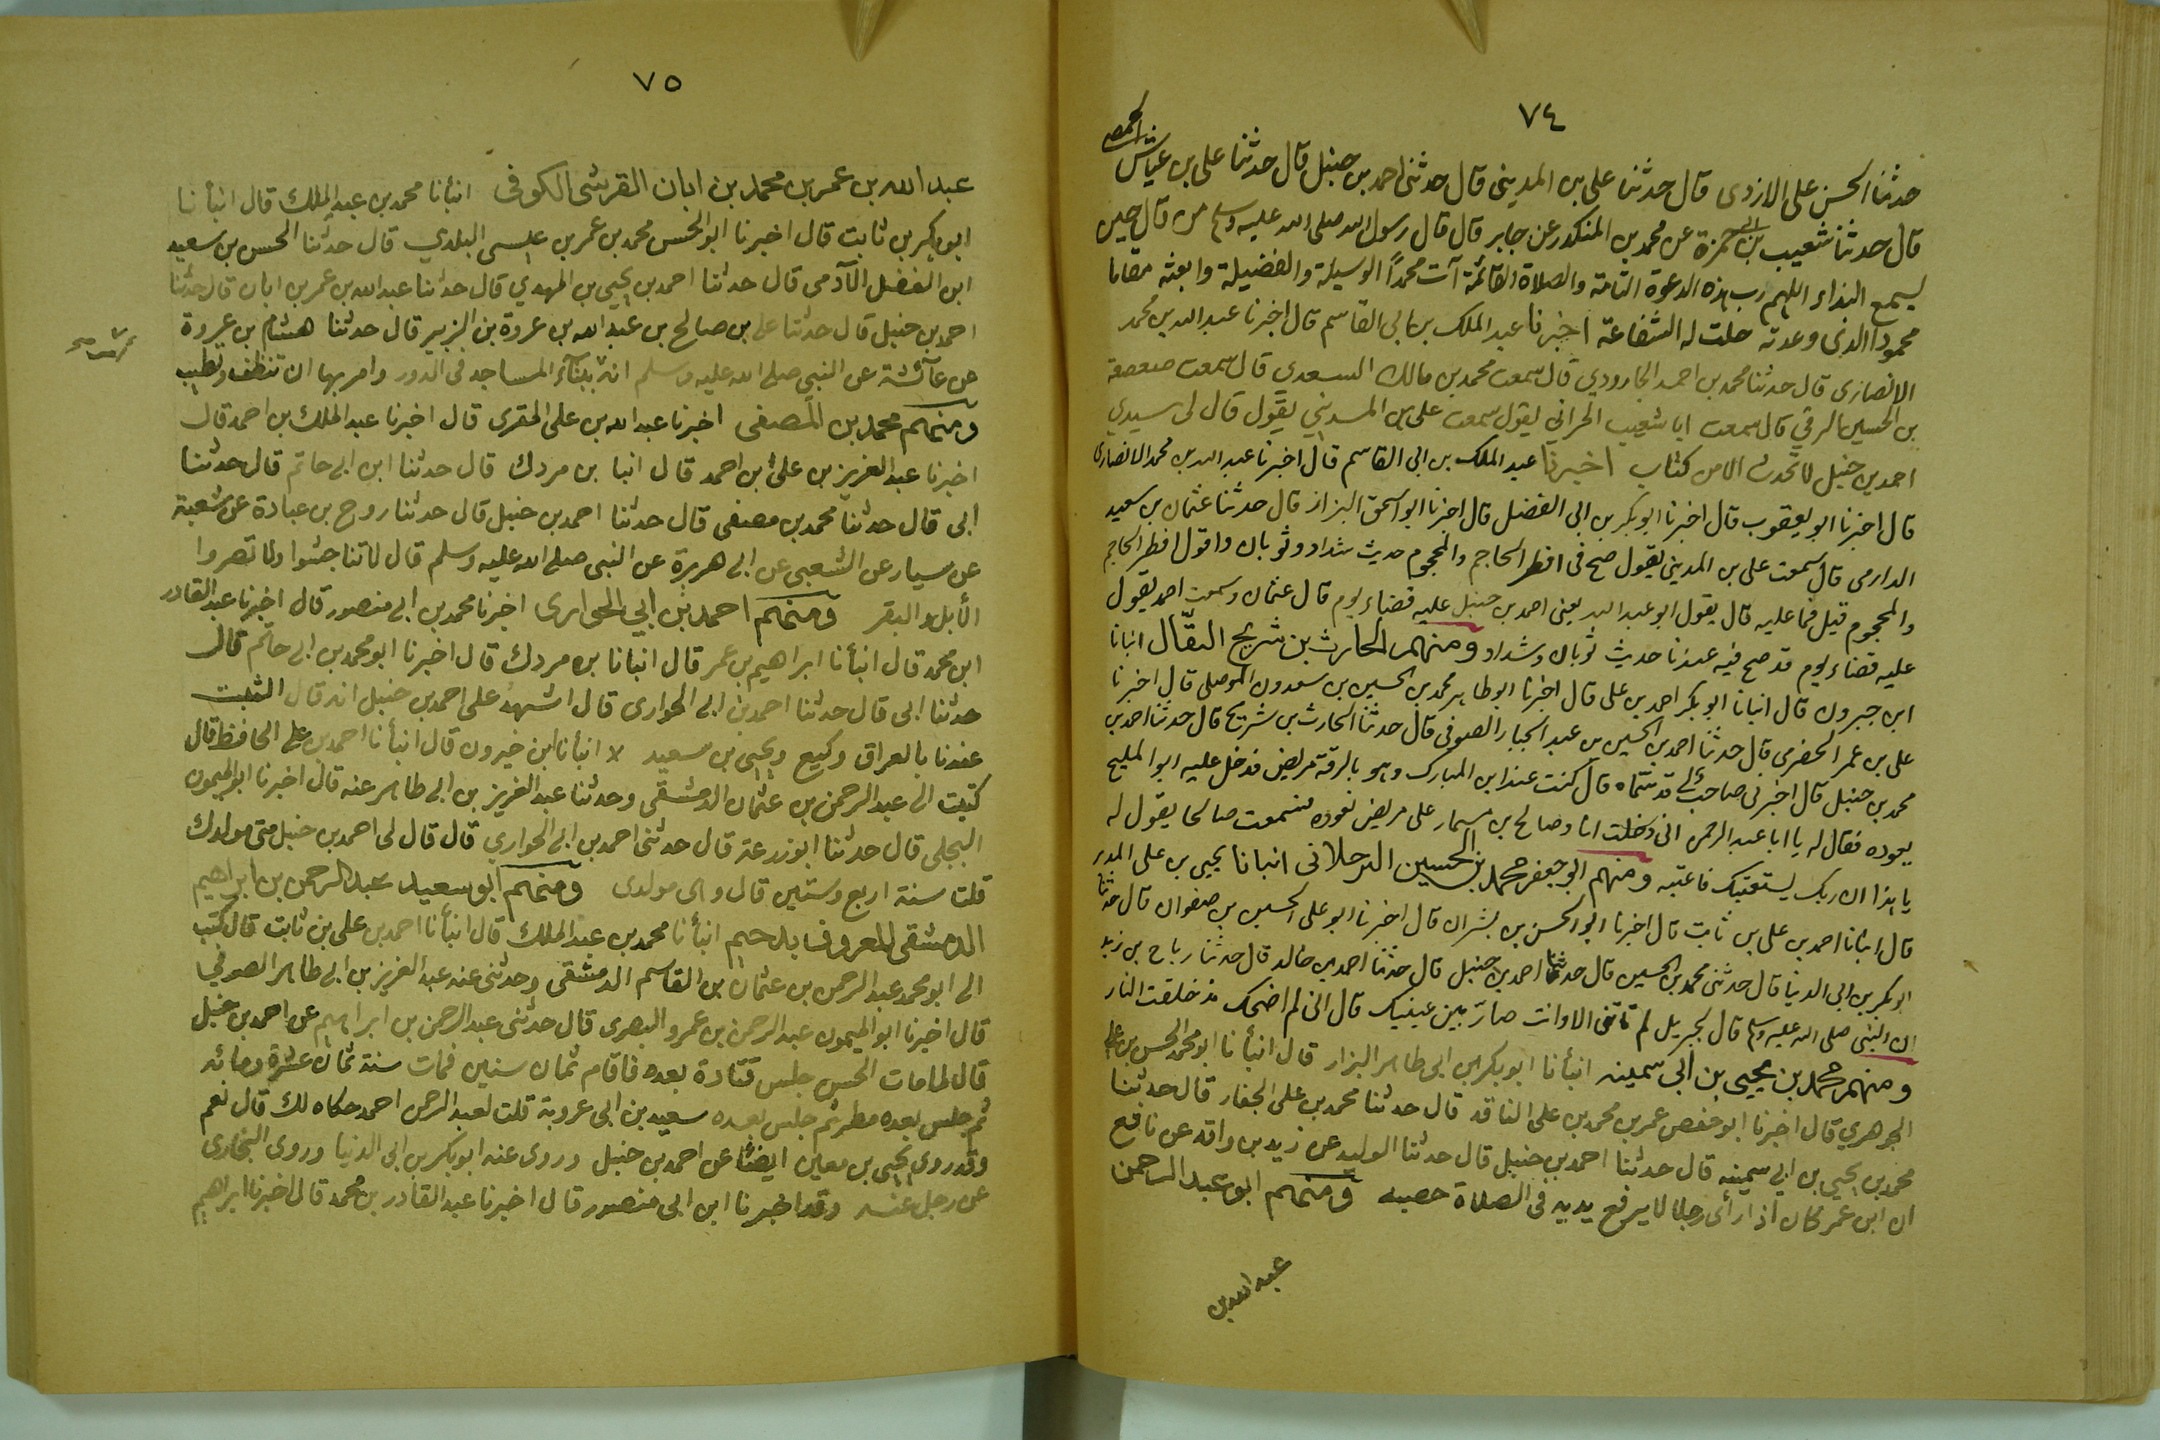 ٧٤
حدثنا الحسن على الازدى قال حدثنا على بن المدينى قال حدثنى احمد بن حنبل قال حدثنا على بن عياش الحمصى
قال حدثنا شعيب بن ابى حمزة عن محمد بن المنكدر عن جابر قال قال رسول الله صلى الله عليه وسلم من قال حين
يسمع النداء اللهم رب هذه الدعوة التامة والصلاة القائمة آت محمداً الوسيلة والفضيلة وابعثه مقاما
محمودا الذى وعدته حلت له الشفاعة اخبرنا عبد الملك بن ابى القاسم قال اخبرنا عبد الله بن محمد
الانصارى قال حدثنا محمد بن احمد الجارودي قال سمعت محمد بن مالك السعدي قال سمعت صعصعة
بن الحسين الرقي قال سمعت ابا شعيب الحراني يقول سمعت على بن المديني يقول قال لى سيدي
احمد بن حنبل لا تحدث الا من كتاب اخبرنا عبد الملك بن ابى القاسم قال اخبرنا عبد الله بن محمد الانصارى
قال اخبرنا ابو يعقوب قال اخبرنا ابو بكر بن ابى الفضل قال اخبرنا ابو اسحق البزاز قال حدثنا عثمان بن سعيد
الدارمى قال سمعت على بن المدينى يقول صح فى افطر الحاجم والمحجوم حديث شداد وثوبان واقول افطر الحاجم
والمحجوم قيل فما عليه قال يقول ابو عبد الله يعنى احمد بن حنبل عليه قضاء يوم قال عثمان وسمعت احمد يقول
عليه قضاء يوم قد صح فيه عندنا حديث ثوبان وشداد ومنهم الحارث بن شريح النقّال انبانا
ابن جبرون قال انبانا ابو بكر احمد بن على قال اخبرنا ابو طاهر محمد بن الحسين بن سعدون الموصلى قال اخبرنا
على بن عمر الحضرمى قال حدثنا احمد بن الحسين بن عبد الجبار الصوفى قال حدثنا الحارث بن شريح قال حدثنا احمد بن
محمد بن حنبل قال اخبرنى صاحب لى قد سماه قال كنت عند ابن المبارك وهو بالرقة مريض فدخل عليه ابو المليح
يعوده فقال له يا ابا عبد الرحمن انى دخلت انا وصالح بن مسمار على مريض نعوده فسمعت صالحا يقول له
يا هذا ان ربك يستعتبك فاعتبه ومنهم ابو جعفر محمد بن الحسين البرجلانى انبانا يحيى بن على المدير
قال انبانا احمد بن على بن ثابت قال اخبرنا ابو الحسن بن بشران قال اخبرنا ابو على الحسين بن صفوان قال حدثنا
ابو بكر بن ابى الدنيا قال حدثنى محمد بن الحسين قال حدثنا احمد بن حنبل قال حدثنا احمد بن خالد قال حدثنا رباح بن زيد
ان النبى صلى الله عليه وسلم قال لجبريل لم تاتنى الا وانت صارّ بين عينيك قال انى لم اضحك مذ خلقت النار
ومنهم محمد بن يحيى بن ابى سمينه انبأنا ابو بكر بن ابى طاهر البزار قال انبأنا ابو محمد الحسن بن على
الجوهري قال اخبرنا ابو حفص عمر بن محمد بن على الناقد قال حدثنا محمد بن على الحفار قال حدثنا
محمد بن يحيى بن ابي سمينه قال حدثنا احمد بن حنبل قال حدثنا الوليد عن زيد بن واقد عن نافع
ان ابن عمر كان اذا رأى رجلا لا يرفع يديه فى الصلاة حصبه ومنهم ابو عبد الرحمن
عبد الله بن
٧٥
عبد الله بن عمر بن محمد بن ابان القرشى الكوفى انبأنا محمد بن عبد الملك قال انبأنا
ابو بكر بن ثابت قال اخبرنا ابو الحسن محمد بن عمر بن عيسى البلدي قال حدثنا الحسن بن سعيد
ابن الفضل الآدمى قال حدثنا احمد بن يحيى بن المهدي قال حدثنا عبد الله بن عمر بن ابان قال حدثنا
احمد بن حنبل قال حدثنا على بن صالح بن عبد الله بن عروة بن الزبير قال حدثنا هشام بن عروة
عن عائشة عن النبى صلى الله عليه وسلم انه بناء المساجد فى الدور وامر بها ان تنظف وتطيب
ومنهم محمد بن المصفى اخبرنا عبد الله بن على المقرى قال اخبرنا عبد الملك بن احمد قال
اخبرنا عبد العزيز بن علىّ بن احمد قال انبا بن مردك قال حدثنا ابن ابى حاتم قال حدثنا
أبى قال حدثنا محمد بن مصفى قال حدثنا احمد بن حنبل قال حدثنا روح بن عبادة عن شعبة
عن سيار عن الشعبى عن ابى هريرة عن النبى صلى الله عليه وسلم قال لا تناجشوا ولا تصروا
الأبل والبقر ومنهم احمد بن أبي الحوارى اخبرنا محمد بن ابى منصور قال اخبرنا عبد القادر
ابن محمد قال انبأنا ابراهيم بن عمر قال انبانا بن مردك قال اخبرنا ابو محمد بن ابى حاتم قال
حدثنا ابى قال حدثنا احمد بن ابى الحوارى قال اشهد على احمد بن حنبل انه قال الثبت
عندنا بالعراق وكيع ويحيى بن سعيد لا انبأنا ابن خيرون قال انبأنا احمد بن على الحافظ قال
كتبت الى عبد الرحمن بن عثمان الدمشقى وحدثنا عبد العزيز بن ابى طاهر عنه قال اخبرنا ابو الميمون
البجلى قال حدثنا ابو زرعة قال حدثنى احمد بن ابى الحواري قال قال لى احمد بن حنبل متى مولدك
قلت سنة اربع وستين قال وهى مولدى ومنهم ابو سعيد عبد الرحمن بن ابراهيم
الدمشقى المعروف بدحيم انبأنا محمد بن عبد الملك قال انبأنا احمد بن على بن ثابت قال كتب
الى ابو محمد عبد الرحمن بن عثمان بن القاسم الدمشقى وحدثنى عنه عبد العزيز بن ابى طاهر الصوفي
قال اخبرنا ابو الميمون عبد الرحمن بن عمرو البصرى قال حدثنى عبد الرحمن بن ابراهيم عن احمد بن حنبل
قال لما مات الحسن جلس قتادة بعده فاقام ثمان سنين فمات سنة ثمان عشرة ومائه
ثم جلس بعده مطر ثم جلس بعده سعيد بن ابى عروبة قلت لعبد الرحمن احمد حكاه لك قال نعم
وقد روى يحيى بن معين ايضا عن احمد بن حنبل وروى عنه ابو بكر بن ابى الدنيا وروى البخارى
عن رجل عنه وقد اخبرنا ابن ابى منصور قال اخبرنا عبد القادر بن محمد قال اخبرنا ابراهيم